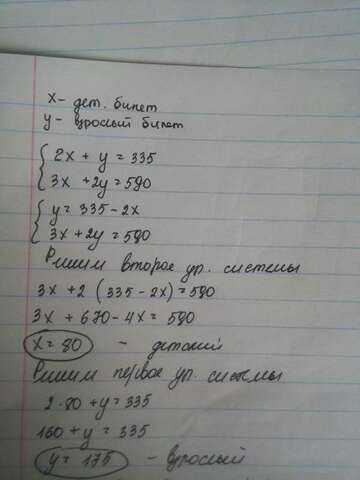 x - дет. билет
y - взрослый билет
2x + y = 335
3x + 2y = 590
y = 335 - 2x
3x + 2y = 590
Решим второе ур. системы
3x + 2 (335 - 2x) = 590
3x + 670 - 4x = 590
x = 80 - детский
Решим первое ур. системы
2 · 80 + y = 335
160 + y = 335
y = 175 - взрослый